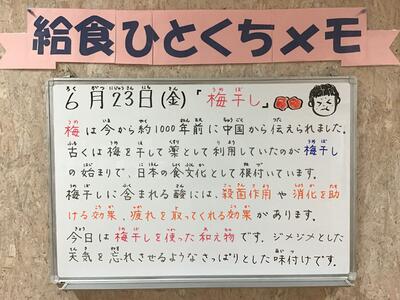 給食ひとくちメモ
6月23日(金)「梅干し」
梅は今から約1000年前に中国から伝えられました。
古くは梅を干して薬として利用していたのが梅干し
の始まりで、日本の食文化として根付いています。
梅干しに含まれる酸には、殺菌作用や消化を助
ける効果、疲れを取ってくれる効果があります。
今日は梅干しを使った和え物です。ジメジメとした
天気を忘れさせるようなさっぱりとした味付けです。